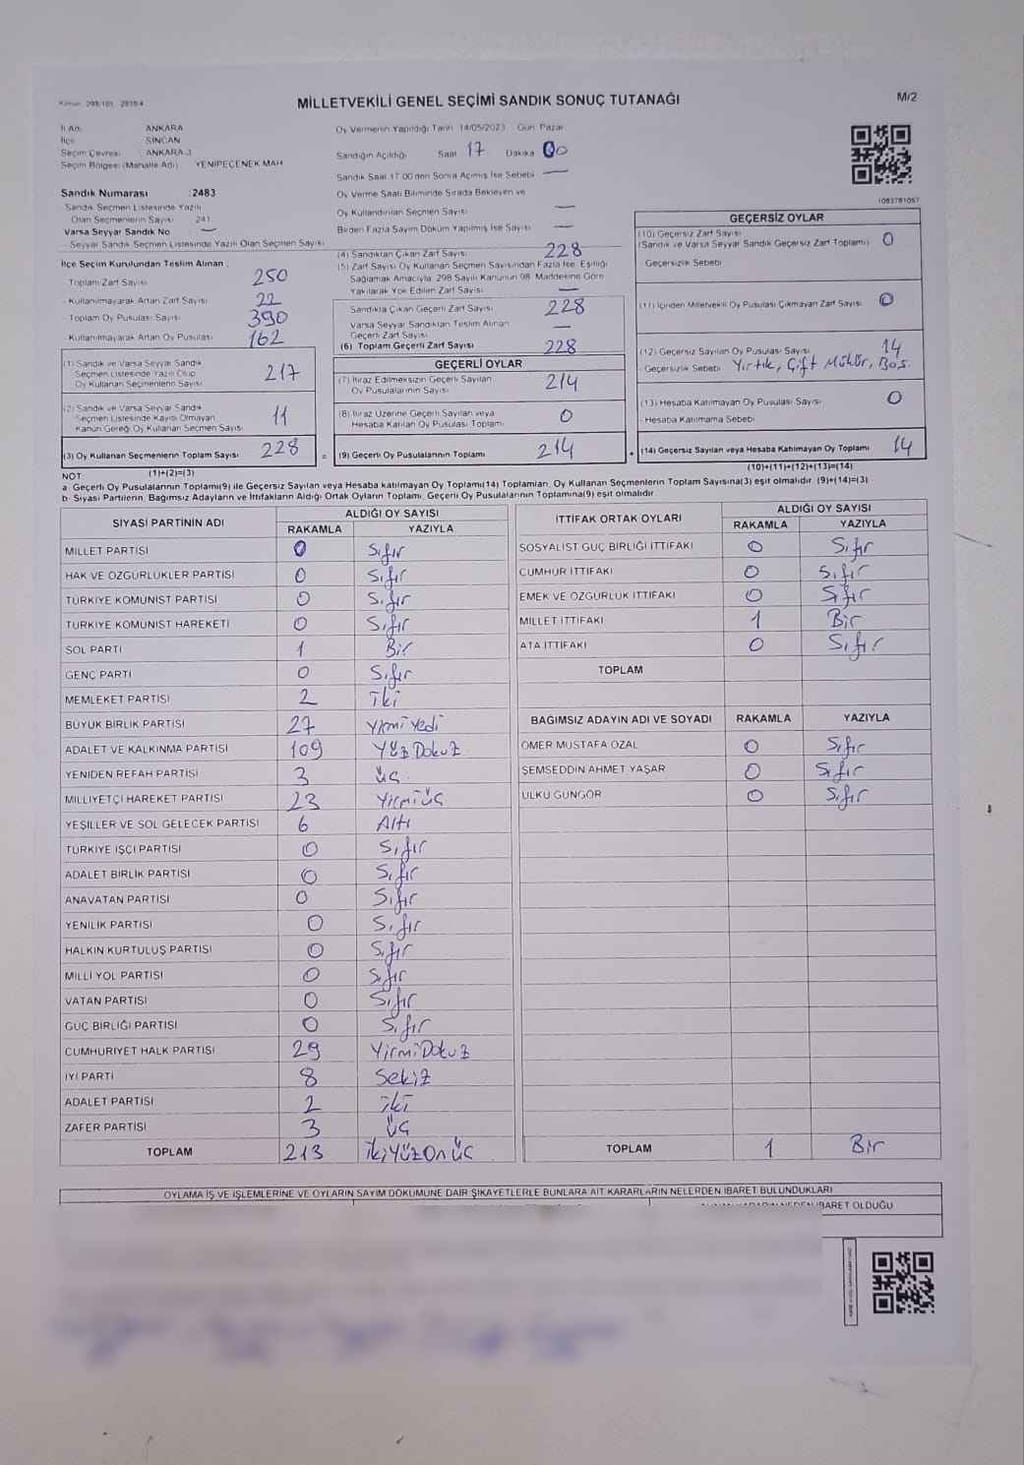 MİLLETVEKİLİ GENEL SEÇİMİ SANDIK SONUÇ TUTANAĞI
M/2
İl Adı ANKARA
İlçe SİNCAN
Seçim Çevresi ANKARA-3
Seçim Bölgesi (Mahalle Adı) YENİPEÇENEK MAH
Sandık Numarası : 2483
Sandık Seçmen Listesinde Yazılı
Olan Seçmenlerin Sayısı 241
Varsa Seyyar Sandık No —
- Seyyar Sandık Seçmen Listesinde Yazılı Olan Seçmen Sayısı
İlçe Seçim Kurulundan Teslim Alınan :
- Toplam Zarf Sayısı 250
- Kullanılmayarak Artan Zarf Sayısı 22
- Toplam Oy Pusulası Sayısı 390
- Kullanılmayarak Artan Oy Pusulası 162
(1) Sandık ve Varsa Seyyar Sandık
Seçmen Listesinde Yazılı Olup
Oy Kullanan Seçmenlerin Sayısı 217
(2) Sandık ve Varsa Seyyar Sandık
Seçmen Listesinde Kaydı Olmayan
Kanun Gereği Oy Kullanan Seçmen Sayısı 11
(3) Oy Kullanan Seçmenlerin Toplam Sayısı 228
(1)+(2)=(3)
Oy Vermenin Yapıldığı Tarih 14/05/2023 Gün Pazar
Sandığın Açıldığı Saat 17 Dakika 00
Sandık Saat 17:00'den Sonra Açılmış İse Sebebi —
Oy Verme Saati Bitiminde Sırada Bekleyen ve
Oy Kullandırılan Seçmen Sayısı —
Birden Fazla Sayım Döküm Yapılmış İse Sayısı —
(4) Sandıktan Çıkan Zarf Sayısı 228
(5) Zarf Sayısı Oy Kullanan Seçmen Sayısından Fazla İse, Eşitliği
Sağlamak Amacıyla 298 Sayılı Kanunun 98. Maddesine Göre
Yakılarak Yok Edilen Zarf Sayısı —
Sandıkta Çıkan Geçerli Zarf Sayısı 228
Varsa Seyyar Sandıktan Teslim Alınan
Geçerli Zarf Sayısı —
(6) Toplam Geçerli Zarf Sayısı 228
GEÇERLİ OYLAR
(7) İtiraz Edilmeksizin Geçerli Sayılan
Oy Pusulalarının Sayısı 214
(8) İtiraz Üzerine Geçerli Sayılan veya
Hesaba Katılan Oy Pusulası Toplamı 0
= (9) Geçerli Oy Pusulalarının Toplamı 214
1083781057
GEÇERSİZ OYLAR
(10) Geçersiz Zarf Sayısı
(Sandık ve Varsa Seyyar Sandık Geçersiz Zarf Toplamı) 0
Geçersizlik Sebebi
(11) İçinden Milletvekili Oy Pusulası Çıkmayan Zarf Sayısı 0
(12) Geçersiz Sayılan Oy Pusulası Sayısı 14
Geçersizlik Sebebi Yırtık, Çift Mühür, Boş.
(13) Hesaba Katılmayan Oy Pusulası Sayısı 0
- Hesaba Katılmama Sebebi
+ (14) Geçersiz Sayılan veya Hesaba Katılmayan Oy Toplamı 14
(10)+(11)+(12)+(13)=(14)
NOT
a- Geçerli Oy Pusulalarının Toplamı(9) ile Geçersiz Sayılan veya Hesaba katılmayan Oy Toplamı(14) Toplamları, Oy Kullanan Seçmenlerin Toplam Sayısına(3) eşit olmalıdır. (9)+(14)=(3)
b- Siyasi Partilerin, Bağımsız Adayların ve İttifakların Aldığı Ortak Oyların Toplamı, Geçerli Oy Pusulalarının Toplamına(9) eşit olmalıdır
SİYASİ PARTİNİN ADI ALDIĞI OY SAYISI
RAKAMLA YAZIYLA
MİLLET PARTİSİ 0 Sıfır
HAK VE ÖZGÜRLÜKLER PARTİSİ 0 Sıfır
TÜRKİYE KOMÜNİST PARTİSİ 0 Sıfır
TÜRKİYE KOMÜNİST HAREKETİ 0 Sıfır
SOL PARTİ 1 Bir
GENÇ PARTİ 0 Sıfır
MEMLEKET PARTİSİ 2 İki
BÜYÜK BİRLİK PARTİSİ 27 Yirmi Yedi
ADALET VE KALKINMA PARTİSİ 109 Yüz Dokuz
YENİDEN REFAH PARTİSİ 3 Üç.
MİLLİYETÇİ HAREKET PARTİSİ 23 Yirmi üç
YEŞİLLER VE SOL GELECEK PARTİSİ 6 Altı
TÜRKİYE İŞÇİ PARTİSİ 0 Sıfır
ADALET BİRLİK PARTİSİ 0 Sıfır
ANAVATAN PARTİSİ 0 Sıfır
YENİLİK PARTİSİ 0 Sıfır
HALKIN KURTULUŞ PARTİSİ 0 Sıfır
MİLLİ YOL PARTİSİ 0 Sıfır
VATAN PARTİSİ 0 Sıfır
GÜÇ BİRLİĞİ PARTİSİ 0 Sıfır
CUMHURİYET HALK PARTİSİ 29 Yirmi Dokuz
İYİ PARTİ 8 Sekiz
ADALET PARTİSİ 2 İki
ZAFER PARTİSİ 3 Üç
TOPLAM 213 İkiYüzOn üç
İTTİFAK ORTAK OYLARI ALDIĞI OY SAYISI
RAKAMLA YAZIYLA
SOSYALİST GÜÇ BİRLİĞİ İTTİFAKI 0 Sıfır
CUMHUR İTTİFAKI 0 Sıfır
EMEK VE ÖZGÜRLÜK İTTİFAKI 0 Sıfır
MİLLET İTTİFAKI 1 Bir
ATA İTTİFAKI 0 Sıfır
TOPLAM
BAĞIMSIZ ADAYIN ADI VE SOYADI RAKAMLA YAZIYLA
ÖMER MUSTAFA ÖZAL 0 Sıfır
ŞEMSEDDİN AHMET YAŞAR 0 Sıfır
ÜLKÜ GÜNGÖR 0 Sıfır
TOPLAM 1 Bir
OYLAMA İŞ VE İŞLEMLERİNE VE OYLARIN SAYIM DÖKÜMÜNE DAİR ŞİKAYETLERLE BUNLARA AİT KARARLARIN NELERDEN İBARET BULUNDUKLARI
İBARET OLDUĞU